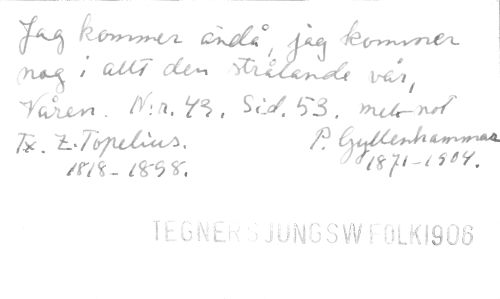 Jag kommer ändå, jag kommer
nog i allt den strålande vår,
Våren. N:r. 43. Sid. 53. mel. not
Tx. Z. Topelius. P. Gyllenhammar
1818-1898. 1871-1904.
TEGNERSJUNGSWFOLK1906